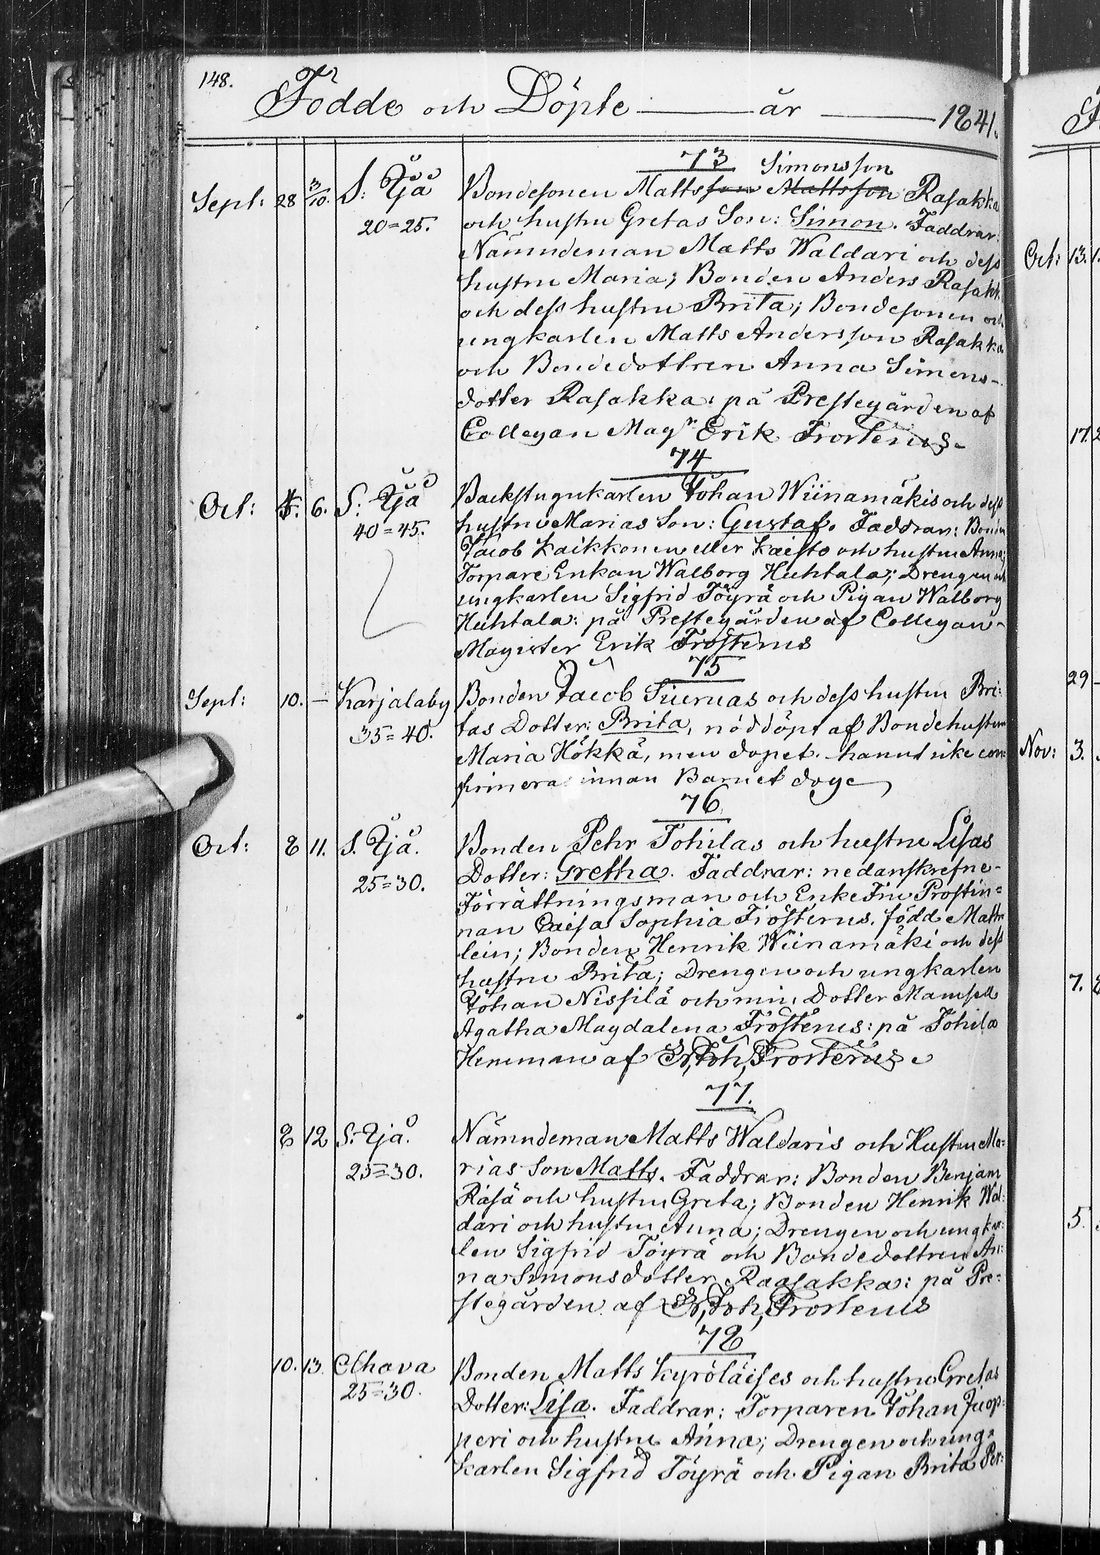 148.
Födde och Döpte — år — 1841.
73 Simonsson
Sept: 28 3/10. S. Ijå Bondesonen Mattsson Mattsson Rasakka
20=25. och hustru Gretas Son: Simon. Faddrar:
Nämndeman Matts Waldari och dess
hustru Maria; Bonden Anders Rasakk
och dess hustru Brita; Bondesonen och
ungkarlen Matts Andersson Rasakka
och Bondedottren Anna Simons-
dotter Rasakka: på Prestegården af
Collegan Magr Erik Frosterus.
74
Oct: 6. S. Ijå Backstugukarlen Johan Wiinamäkis och dess
40=45. hustru Marias Son: Gustaf. Faddrar: Bonden
Jacob Kaikkonen eller Kaisto och hustru Anna;
Torpare Enkan Walborg Huhtala; Drengen och
ungkarlen Sigfrid Töyrä och Pigan Walborg
Huhtala: på Prestegården af Collegan-
Magister Erik Frosterus
75
Sept: 10. — Karjalaby Bonden Jacob Tiernas och dess hustru Bri:
35=40. tas Dotter: Brita, nöddöpt af Bondehustrun
Maria Hökkä, men dopet hanns icke con:
firmera innan Barnet doge
76
Oct: 8 11. S. Ijå. Bonden Pehr Tohilas och hustru Lisas
25=30. Dotter: Gretha. Faddrar: nedanskrefne
Förrättningsman och Enke Fru Prostin=
nan Caisa Sophia Frosterus, född Matth
lein; Bonden Henrik Wiinamäki och dess
hustru Brita; Drengen och ungkarlen
Johan Nissilä och min Dotter Mamsell
Agatha Magdalena Frosterus: på Tohila
Hemman af Joh, Frosterus.
77.
8 12 S. Ijå. Nämndeman Matts Waldaris och Hustru Ma:
25=30. rias Son Matts. Faddrar: Bonden Benjam
Räisä och hustru Greta; Bonden Henrik Wal:
dari och hustru Anna; Drengen och ungkar:
len Sigfrid Töyrä och Bondedottren An:
na Simonsdotter Raasakka: på Pre:
stegården af Joh, Frosterus
78
10. 13. Olhava Bonden Matts Kyröläises och hustru Gretas
25=30. Dotter: Lisa. Faddrar: Torparen Johan Juop-
peri och hustru Anna; Drengen och ung=
karlen Sigfrid Töyrä och Pigan Brita Per:
Oct: 13.
17.
29
Nov: 3.
7.
5.